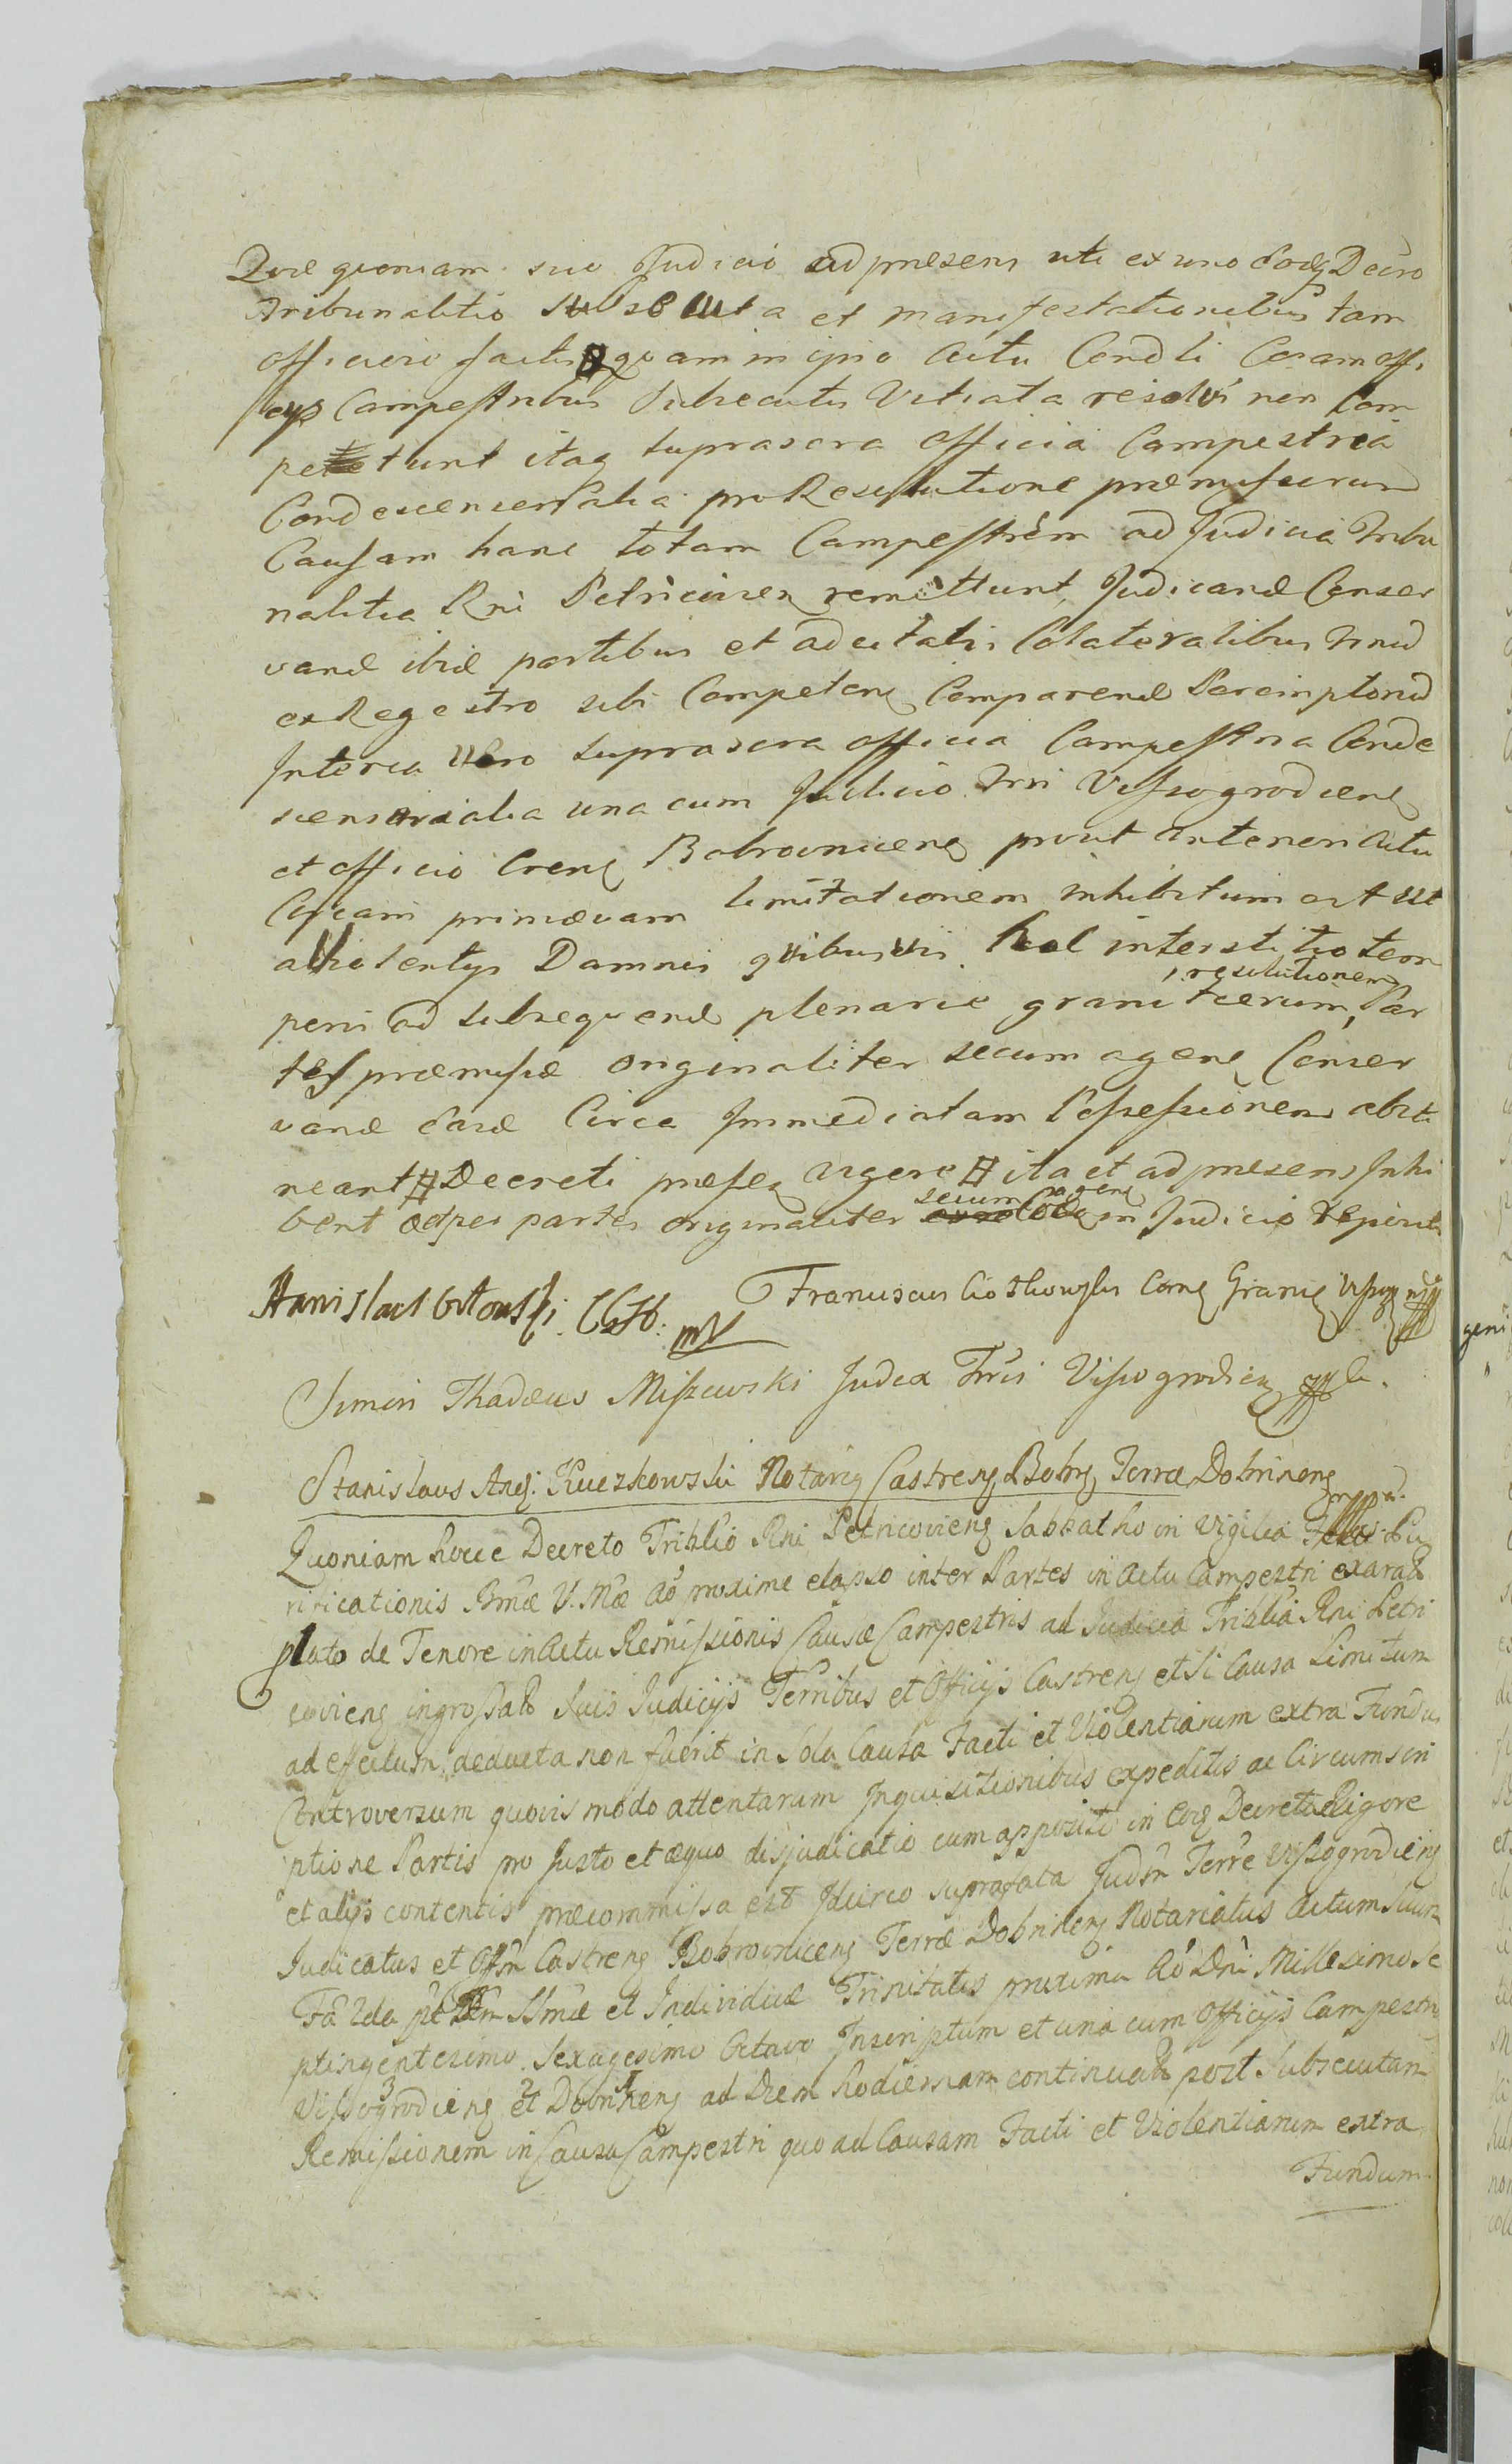 Quæ quoniam suo Judicio ad præsens uti ex uno eodq Decro
Tribunalitio subsecuta et manifestationibus tam
officiose factis # quam in ipso Actu Condli Coram offi
cys Campestribus Subsecutis Vitiata resolvi non Com
petunt itaq suprascra officia Campestria
Condescensorialia pro Resolutione præmissorum
Causam hanc totam Campestrem ad Judicia Tribu
nalitia Rni Petricovien remittunt, Judicand Conser
vand ibid partibus et adcitatis Colateralibus Trnd
ex Regestro sibi Competen Comparend Peremptorie
Interea vero suprascra officia Campestria Conde
scensorialia una cum Judicio Trri Vissogrodien
et officio Cren Bobrovnicen prout anteriori Actu
Causam primævam limitationem inhibitum est ut
a Violentys Damnis quibusvis hoc interstitio tem
peris ad subsequend plenarie granicierum, resolutionem Par
tes præmissæ originaliter secum agen Conser
vand Eased Circa Immediatam Possessionem absti
neant # Decreti præsen Vigore # ita et ad præsens Inhi
bent adpes partes originaliter secum agen in Judicio
Franciscus Cors Granic Vissog
Simon Thadæus Miszewski Judex Trris Vissogrodien
Stanislaus And: Kuczkowski Notariq Castren Bobrq Terræ Dobrinen
mpd.
Quoniam hocce Decreto Triblio Rni Petricovien Sabbatho in Vigilia Festi Pu
rificationis Bmæ V. Mæ Ao proxime elapso inter Partes in Actu Campestri exarat
plato de Tenore in Actu Remissionis Causæ Campestris ad Judicia Triblia Rni Petri
covien ingrossato Suis Judicijs Terribus et Officijs Castren et si Causa Limitum
ad effectum deducta non fuerit in Sola Causa Facti et Violentiarum extra Fundu
Controversum quovis modo attentarum Inquisitionibus expeditis ac Circumscri
ptione Partis pro Justo et æquo disjudicatio cum apposito in Eod Decreto Rigore
et alijs contentis præcommissa est Idcirco suprafata Judm Terre Vissogrodien
Judicatus et Offm Castren Bobrovnicen Terræ Dobrinen Notariatus Actum Suum
Fa 2da pt Sstmæ et Individuæ Trinitatis proxima Ao Dni Millesimo Se
ptingentesimo Sexagesimo Octavo Inscriptum et una cum Officijs Campestri
Vissogrodien et Dobrinen ad Diem hodiernam continuat post Subsecutam
Remissionem in Causa Campestri quo ad Causam Facti et Violentiarum extra
Fundum